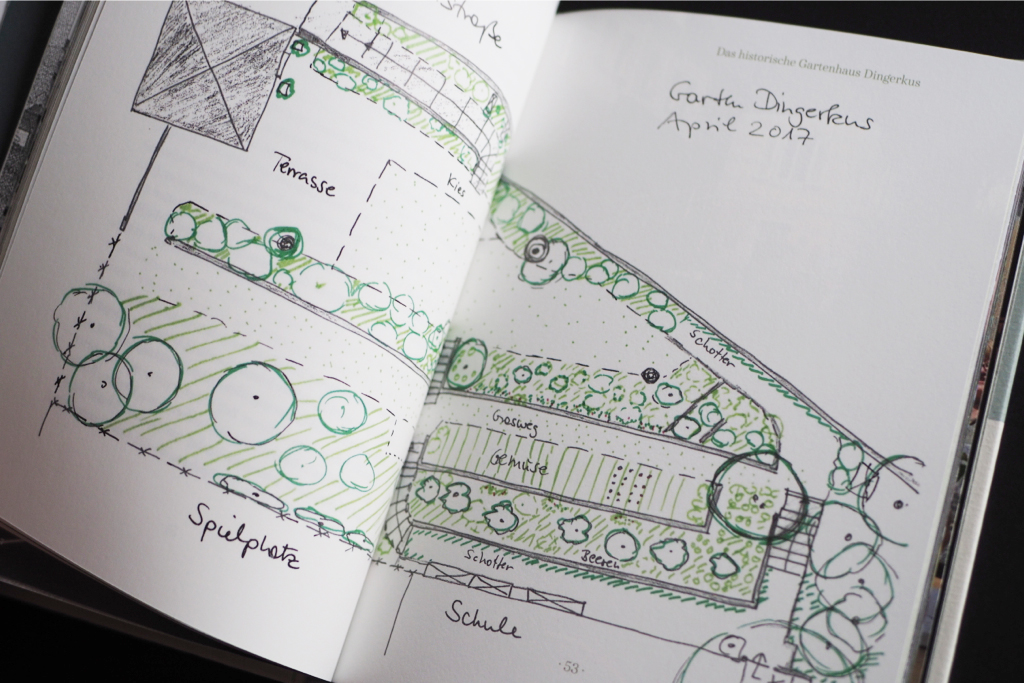 straße
Terrasse
Kies
Spielplatz
Das historische Gartenhaus Dingerkus
Garten Dingerkus
April 2017
Schotter
Grasweg
Gemüse
Schotter
Beeren
Schule
· 53 ·